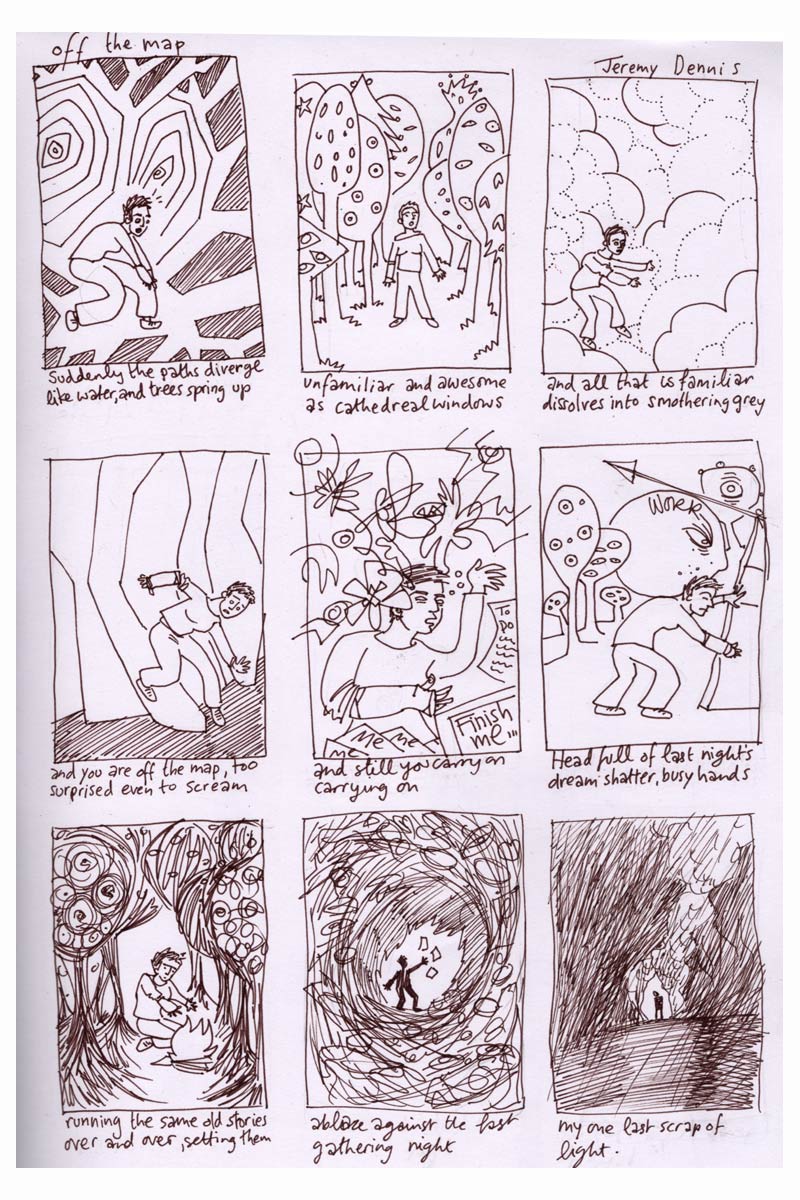 off the map
Jeremy Dennis
Suddenly the paths diverge
like water, and trees spring up
unfamiliar and awesome
as cathedreal windows
and all that is familiar
dissolves into smothering grey
and you are off the map, too
surprised even to scream
Finish
me...
me
Me
Me
and still you carry on
carrying on
WORK
Head full of last night's
dream shatter, busy hands
running the same old stories
over and over, setting them
ablaze against the fast
gathering night
my one last scrap of
light.